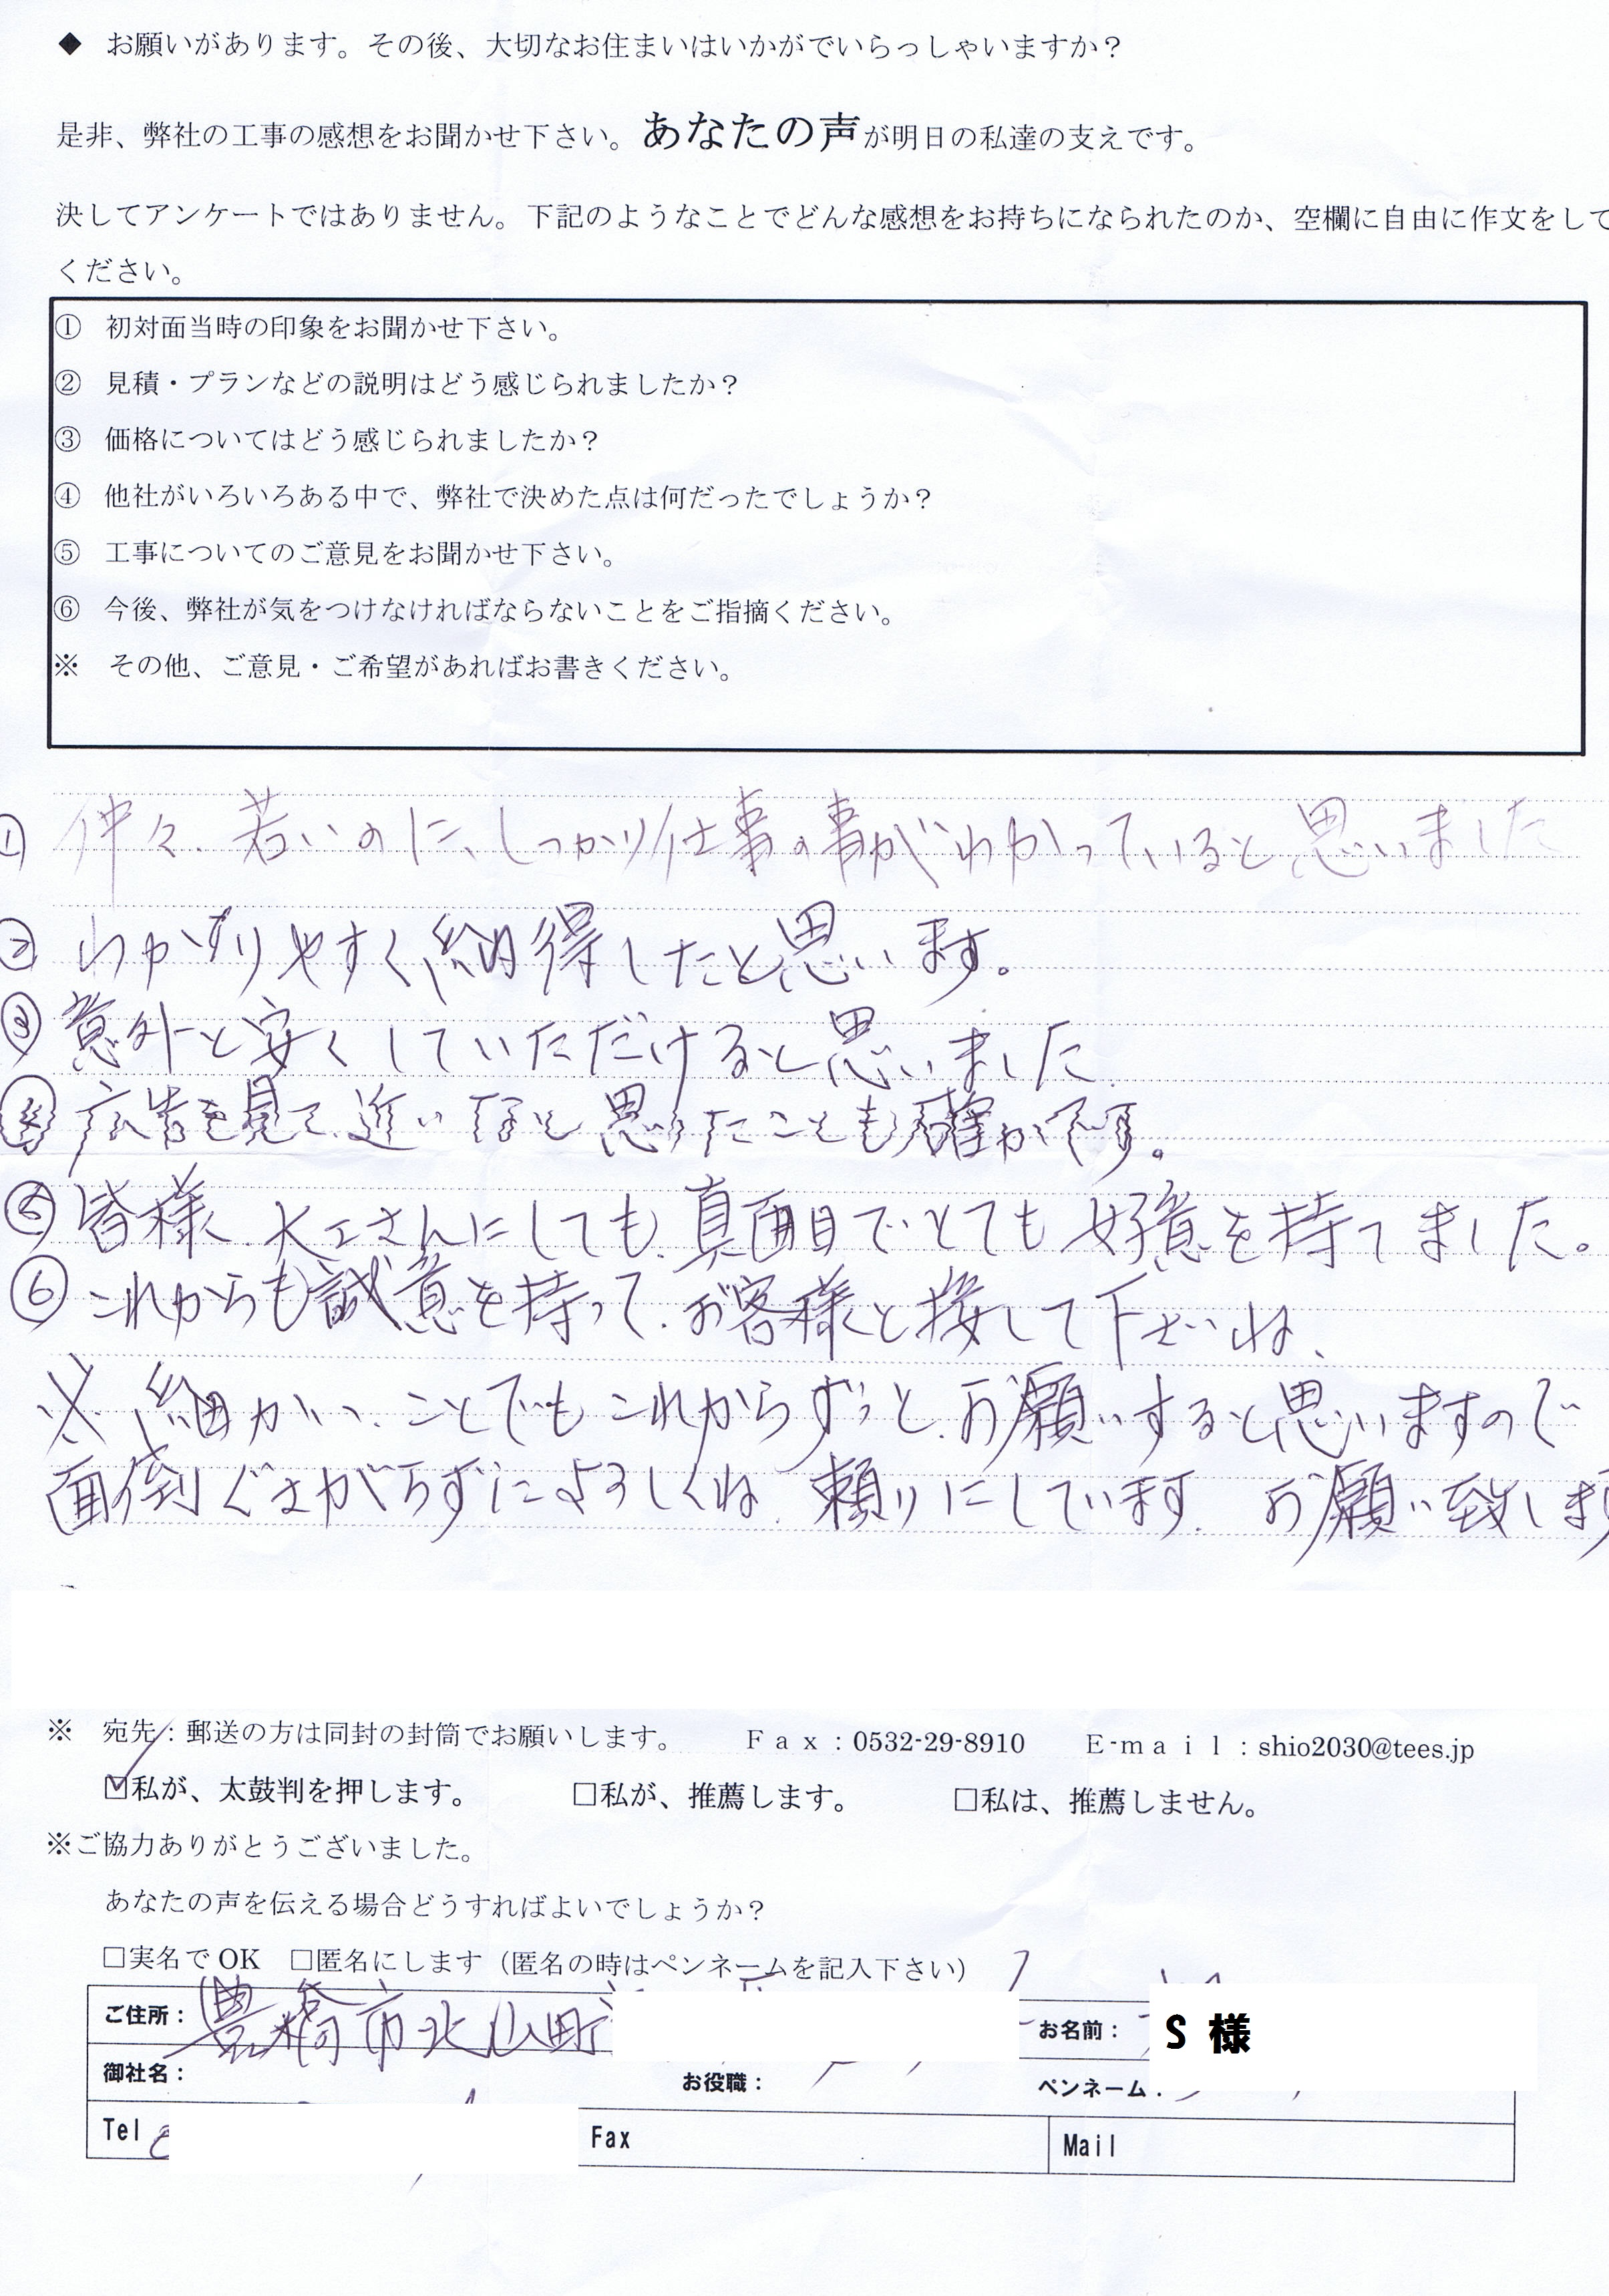 ◆ お願いがあります。その後、大切なお住まいはいかがでいらっしゃいますか？
是非、弊社の工事の感想をお聞かせ下さい。あなたの声が明日の私達の支えです。
決してアンケートではありません。下記のようなことでどんな感想をお持ちになられたのか、空欄に自由に作文をして
ください。
① 初対面当時の印象をお聞かせ下さい。
② 見積・プランなどの説明はどう感じられましたか？
③ 価格についてはどう感じられましたか？
④ 他社がいろいろある中で、弊社で決めた点は何だったでしょうか？
⑤ 工事についてのご意見をお聞かせ下さい。
⑥ 今後、弊社が気をつけなければならないことをご指摘ください。
※ その他、ご意見・ご希望があればお書きください。
① 仲々、若いのに、しっかり仕事の事がわかっていると思いました
② わかりやすく納得したと思います。
③ 意外と安くしていただけると思いました
④ 広告を見て、近いなと思ったことも確かです。
⑤ 皆様、大工さんにしても、真面目でとても好意を持てました。
⑥ これからも誠意を持って、お客様と接して下さいね、
※ 細かい、ことでもこれからずっと、お願いすると思いますので
面倒ぐさがらずによろしくね、頼りにしています、お願い致します
※ 宛先：郵送の方は同封の封筒でお願いします。 Ｆａｘ：0532-29-8910 Ｅ-ｍａｉｌ：shio2030@tees.jp
☑私が、太鼓判を押します。 □私が、推薦します。 □私は、推薦しません。
※ご協力ありがとうございました。
あなたの声を伝える場合どうすればよいでしょうか？
□実名でOK □匿名にします（匿名の時はペンネームを記入下さい）
ご住所： 豊橋市北山町 お名前： S 様
御社名： お役職： ペンネーム：
Tel Fax Mail